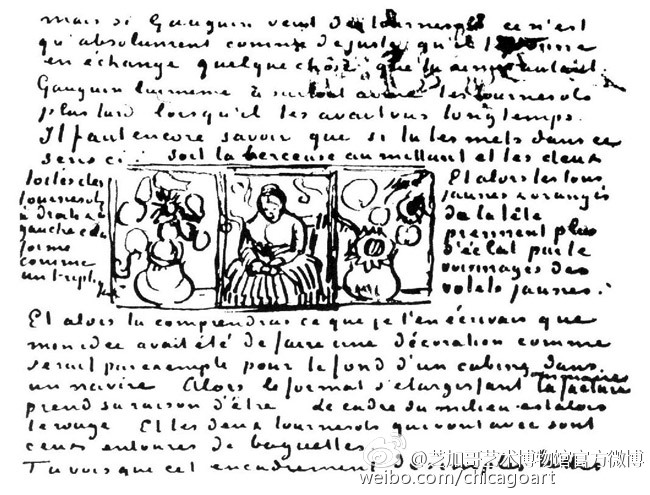 mais si Gauguin veut des tournesols ce n'est
qu'absolument comme de juste qu'il te donne
en échange quelque chose que tu aimes autant.
Gauguin lui même a surtout aimé les tournesols
plus tard lorsqu'il les avait vus longtemps.
Il faut encore savoir que si tu les mets dans ce
sens ci: soit la berceuse au millant et les deux
toiles des
tournesols
à droite &
gauche cela
forme
comme
un triptyque
Et alors les tons
jaunes & orangés
de la tête
prennent plus
d'éclat par le
voisinages des
volets jaunes.
Et alors tu comprendras ce que je t'en écrivais que
mon idée avait été de faire une décoration comme
serait par exemple pour le fond d'un cabine dans
un navire Alors le format s'élargissant la facture
prend sa raison d'être Le cadre du milieu est alors
le rouge Et les deux tournesols qui vont avec sont
ceux entourés de baguettes
Tu vois que cet encadrement de simples lattes
@芝加哥艺术博物馆官方微博
weibo.com/chicagoart